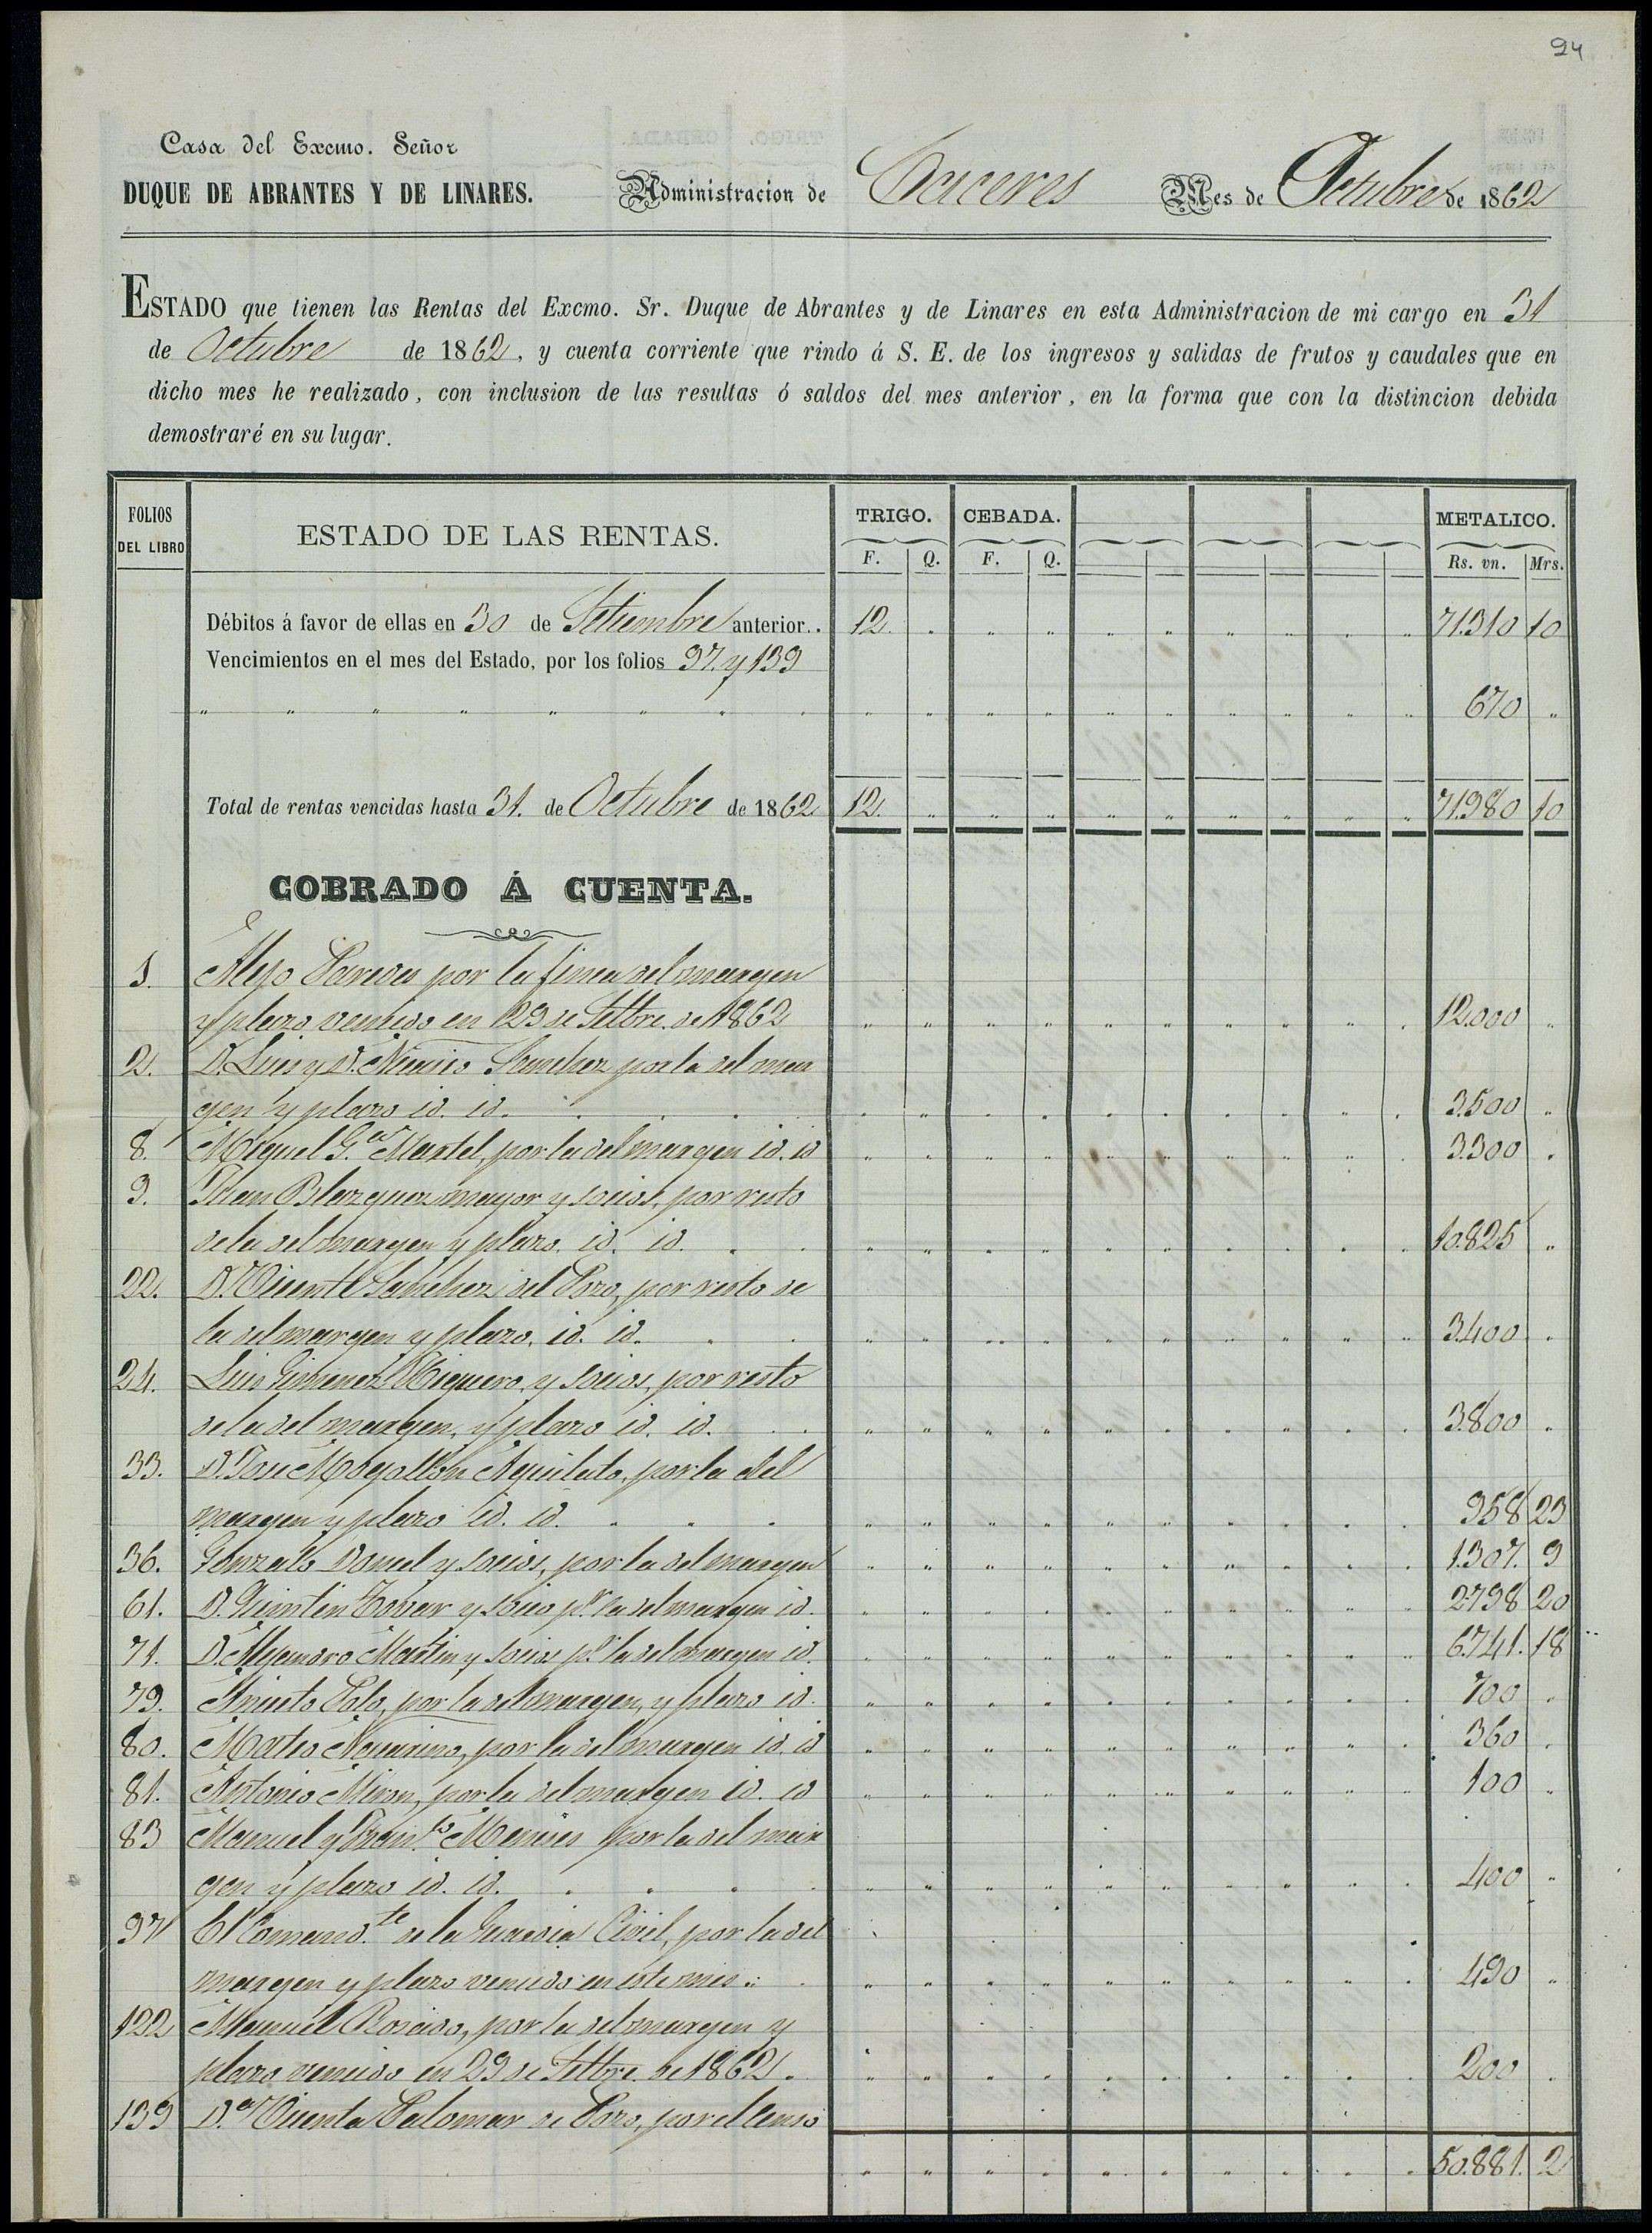 94
Casa del Excmo. Señor
DUQUE DE ABRANTES Y DE LINARES. Administracion de Caceres Mes de Octubre de 1862
ESTADO que tienen las Rentas del Excmo. Sr. Duque de Abrantes y de Linares en esta Administracion de mi cargo en 31
de Octubre de 1862, y cuenta corriente que rindo á S. E. de los ingresos y salidas de frutos y caudales que en
dicho mes he realizado, con inclusion de las resultas ó saldos del mes anterior, en la forma que con la distincion debida
demostraré en su lugar.
FOLIOS DEL LIBRO ESTADO DE LAS RENTAS. TRIGO. CEBADA. METALICO.
F. Q. F. Q. Rs. vn. Mrs.
Débitos á favor de ellas en 30 de Setiembre anterior.. 12. " " " " " " " " " 71.310 10
Vencimientos en el mes del Estado, por los folios 97. y 139
" " " " " " " " " " " " " " " " " " 670 "
Total de rentas vencidas hasta 31. de Octubre de 1862 12. " " " " " " " " " 71.980 10
COBRADO Á CUENTA.
1. Alejo Paredes por la finca del margen
y plazo vencido en 29 de Setbre. de 1862 12.000 "
2. D. Luis y D. Sanchez por la del mar
gen y plazo id. id. 3.500 "
8. Miguel G.ª Martel, por la del margen id. id 3.300 "
9. Blazquez mayor y socios, por resto
de la del margen y plazo. id. id. 10.825 "
22. D. Vicente Sanchez del Pozo, por resto de
la del margen y plazo, id. id. 3.400 "
24. Luis Gimenez Higuero, y socios, por resto
de la del margen, y plazo id. id. 3.800 "
33. D. Jose Mogollon Aguilato, por la del
margen y plazo id. id. 958 23
36. Gonzalo Doncel y socios, por la del margen 1.307. 9
61. D. Quintin Tovar y socio p.r la del margen id. 2.798 20
71. D. Alejandro Martin y socios p.r la del margen id. 6.741. 18
79. Aniceto Polo, por la del margen, y plazo id. 700 "
80. Mateo por la del margen id. id 360 "
81. Antonio Miron, por la del margen id. id 100 "
83 Manuel y Fran.co por la del mar
gen y plazo id. id. 400 "
97 El Comand.te de la Guardia Civil, por la del
margen y plazo vencido en este mes 490 "
122 Manuel Rosado, por la del margen y
plazo vencido en 29 de Setbre. de 1862. 200 "
139 D.ª Vicenta Palomar de Pozo, por el censo
50.881. 2